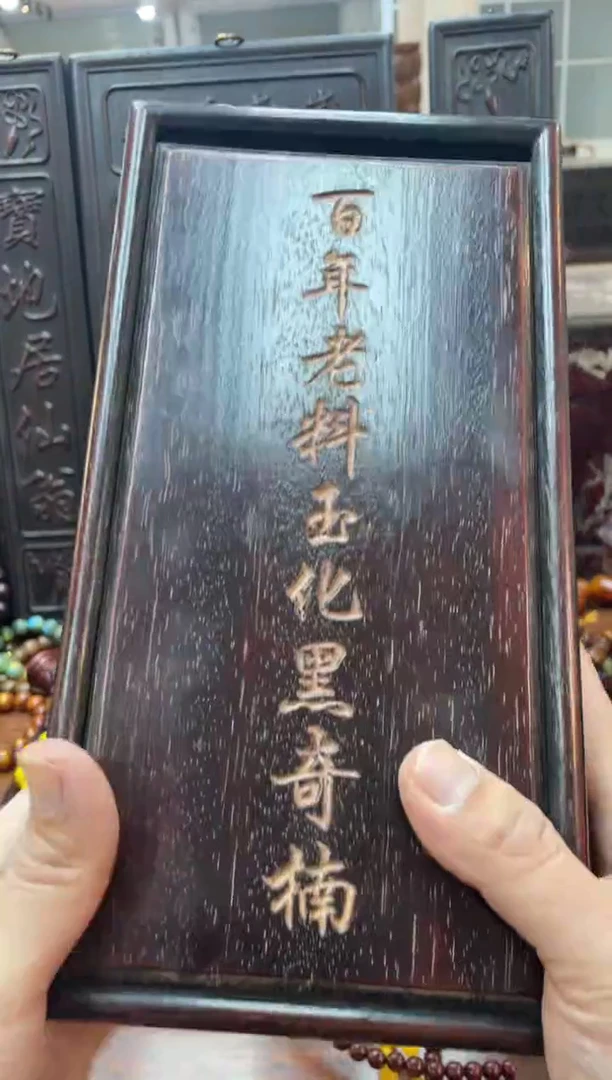 百年老料玉化黑奇楠
寶地居仙翁